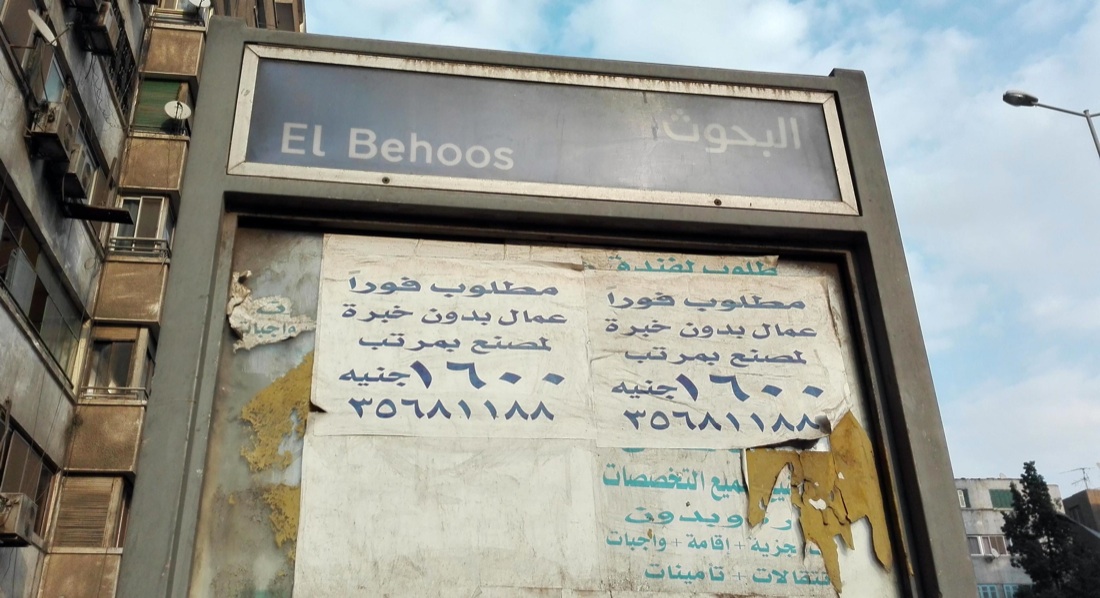 El Behoos
البحوث
مطلوب فوراً
عمال بدون خبرة
لمصنع بمرتب
١٦٠٠ جنيه
٣٥٦٨١١٨٨
طلوب لفندق
مطلوب فوراً
عمال بدون خبرة
لمصنع بمرتب
١٦٠٠ جنيه
٣٥٦٨١١٨٨
التخصصات
وبدون
مجزية + اقامة + واجبات
تأمينات
واجبات